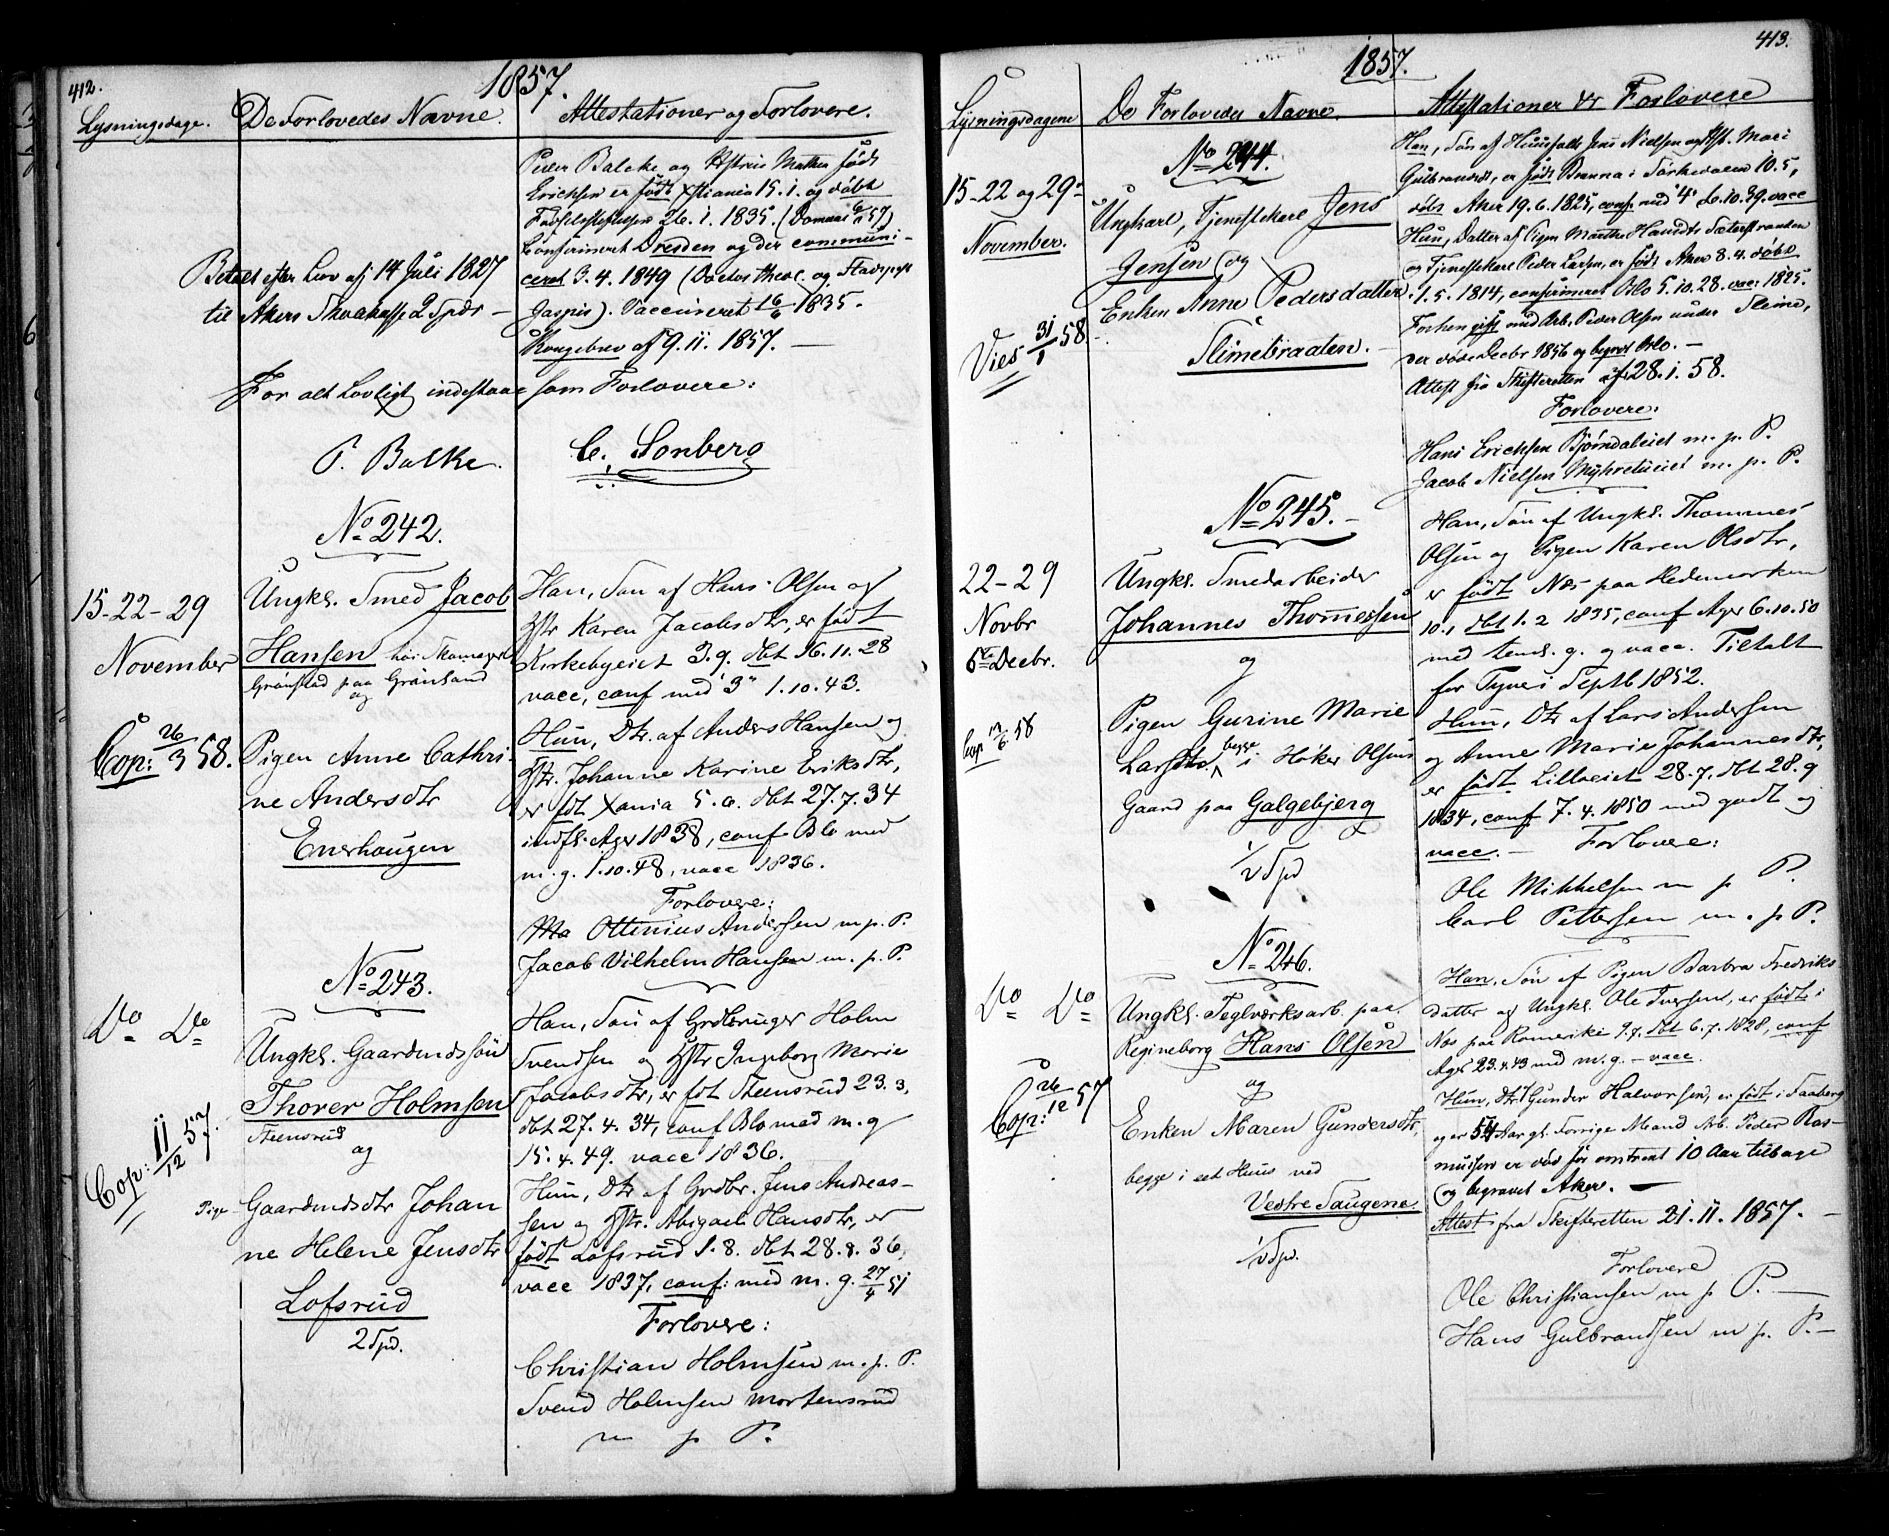 412.
1857.
Lysningsdage. De Forlovedes Navne. Attestationer og Forlovere.
Peder Balcke og Hstrue født
Erichsen er født Xstiania 15.1. og døbt
26.1.1835.
Confirmeret Dresden og der communi-
ceret 3.4.1849 (Doctor theol. og
Jaspis). Vaccineret 16/6 1835.
Kongebrev af 9.11.1857. —
Betalt efter Lov af 14 Juli 1827
til Akers 2 Spdr —
For alt Lovligt indestaae som Forlovere:
P. Balke. C. Sonberg
No 242.
15-22-29
November
Cop: 26/3 58.
Ungkl. Smed Jacob
Hansen hos
Grønstad paa Grønland
og
Pigen Anne Cathri-
ne Andersdtr
Enerhougen
Han, Søn af Hans Olsen og
Hstr Karen Jacobsdtr, er født
Kirkebyeiet 3.9. dbt 16.11.28
vacc, conf med "3" 1.10.43.
Hun, Dtr. af Anders Hansen og
Hstr. Johanne Karine Eriksdtr,
er fdt Xania 5.6. dbt 27.7.34
indfl. Ager 1838, conf Oslo med
m.g. 1.10.48, vacc 1836.
Forlovere:
Ottinius Andersen m.p.P.
Jacob Vilhelm Hansen m.p.P.
No 243.
Do Do
Cop: 11/12 57.
Ungkl. Gaardmdssøn
Thorer Holmsen
Steensrud
og
Pige Gaardmdsdtr Johan
ne Helene Jensdtr
Lofsrud
2 Spd.
Han, Søn af Grdbruger Holm
Svendsen og Hstr Ingeborg Marie
Jacobsdtr, er fdt Steensrud 23.3,
dbt 27.4.34, conf Oslo med m.g
15.4.49. vacc 1836.
Hun, Dtr af Grdbr. Jens Andreas-
sen og Hstr. Abigael Hansdtr, er
født Lofsrud 1.8. dbt 28.8.36,
vacc 1837, conf: med m.g. 27/4 51
Forlovere:
Christian Holmsen m.p.P.
Svend Holmsen Mortensrud
m p P.
413.
1857.
Lysningsdagene De Forlovedes Navne. Attestationer & Forlovere
No 244.
15-22 og 29de
November.
Vies 31/1 58
Ungkarl, Tjenestekarl Jens
Jensen og
Enken Anne Pedersdatter
Slimebraaten.
Han, Søn af Huusfolk Jens Nielsen og Hst. Mari
Gulbrandsdt, er født Brenna i Sørkedalen 10.5,
døbt Aker 19.6.1825, conf med "4" d. 6.10.39. vacc
Hun, Datter af Pigen Marthe Hansdt. Sæterstranden
og Tjenestekarl Peder Larsen, er født Aker 8.4. døbt
1.5.1814, confirmeret Oslo 5.10.28. vacc. 1825.
Forhen gift med Arb. Peder Olsen under Slime,
der døde Decbr 1856 og begrvt Oslo. —
Attest fra Skifteretten af 28.1.58.
Forlovere:
Hans Erichsen Bjørndaleiet m.p.P.
Jacob Nielsen Myhretueiet m.p.P.
No 245.
22-29
Novbr
6te Decbr.
Cop 58
Ungkl. Smedarbeider
Johannes Thomessen
og
Pigen Gurine Marie
Larsdtr. begge i Høker Olsens
Gaard paa Galgebjerg
1/2 Spd
Han, Søn af Ungkl. Thommes
Olsen og Pigen Karen Olsdtr,
er født Næs paa Hedemarken
10.1 dbt 1.2 1835, conf Ager 6.10.50
med temd. g. og vacc. Tiltalt
for Tyveri Septb 1852.
Hun, Dtr af Lars Andersen
og Anne Marie Johannesdtr,
er født Lilloeiet 28.7. dbt 28.9
1834, conf 7.4.1850 med godt og
vacc. — Forlovere:
Ole Mikkelsen m p P.
Carl Pettersen m.p P.
No 246.
Do Do
Cop: 26/12 57
Ungkl. Teglverksarb. paa
Regineborg Hans Olsen
og
Enken Maren Gundersdtr,
begge i eet Huus ved
Vestre Saugene.
1/2 Spd.
Han, Søn af Pigen Barbra Fredriks-
datter og Ungkl. Ole Iversen, er født i
Næs paa Romerike 9.7. dbt 6.7.1828, conf
Ager 23.4.43 med m.g. — vacc.
Hun, dtr Gunder Halvorsen, er født i Faaberg
og er 54 Aar gl. Forrige Mand Arb. Peder Ras-
mussen er død for omtrent 10 Aar tilbage
og begravet Aker. —
Attest fra Skifteretten 21.11.1857. —
Forlovere
Ole Christiansen m p P. —
Hans Gulbrandsen m p. P. —